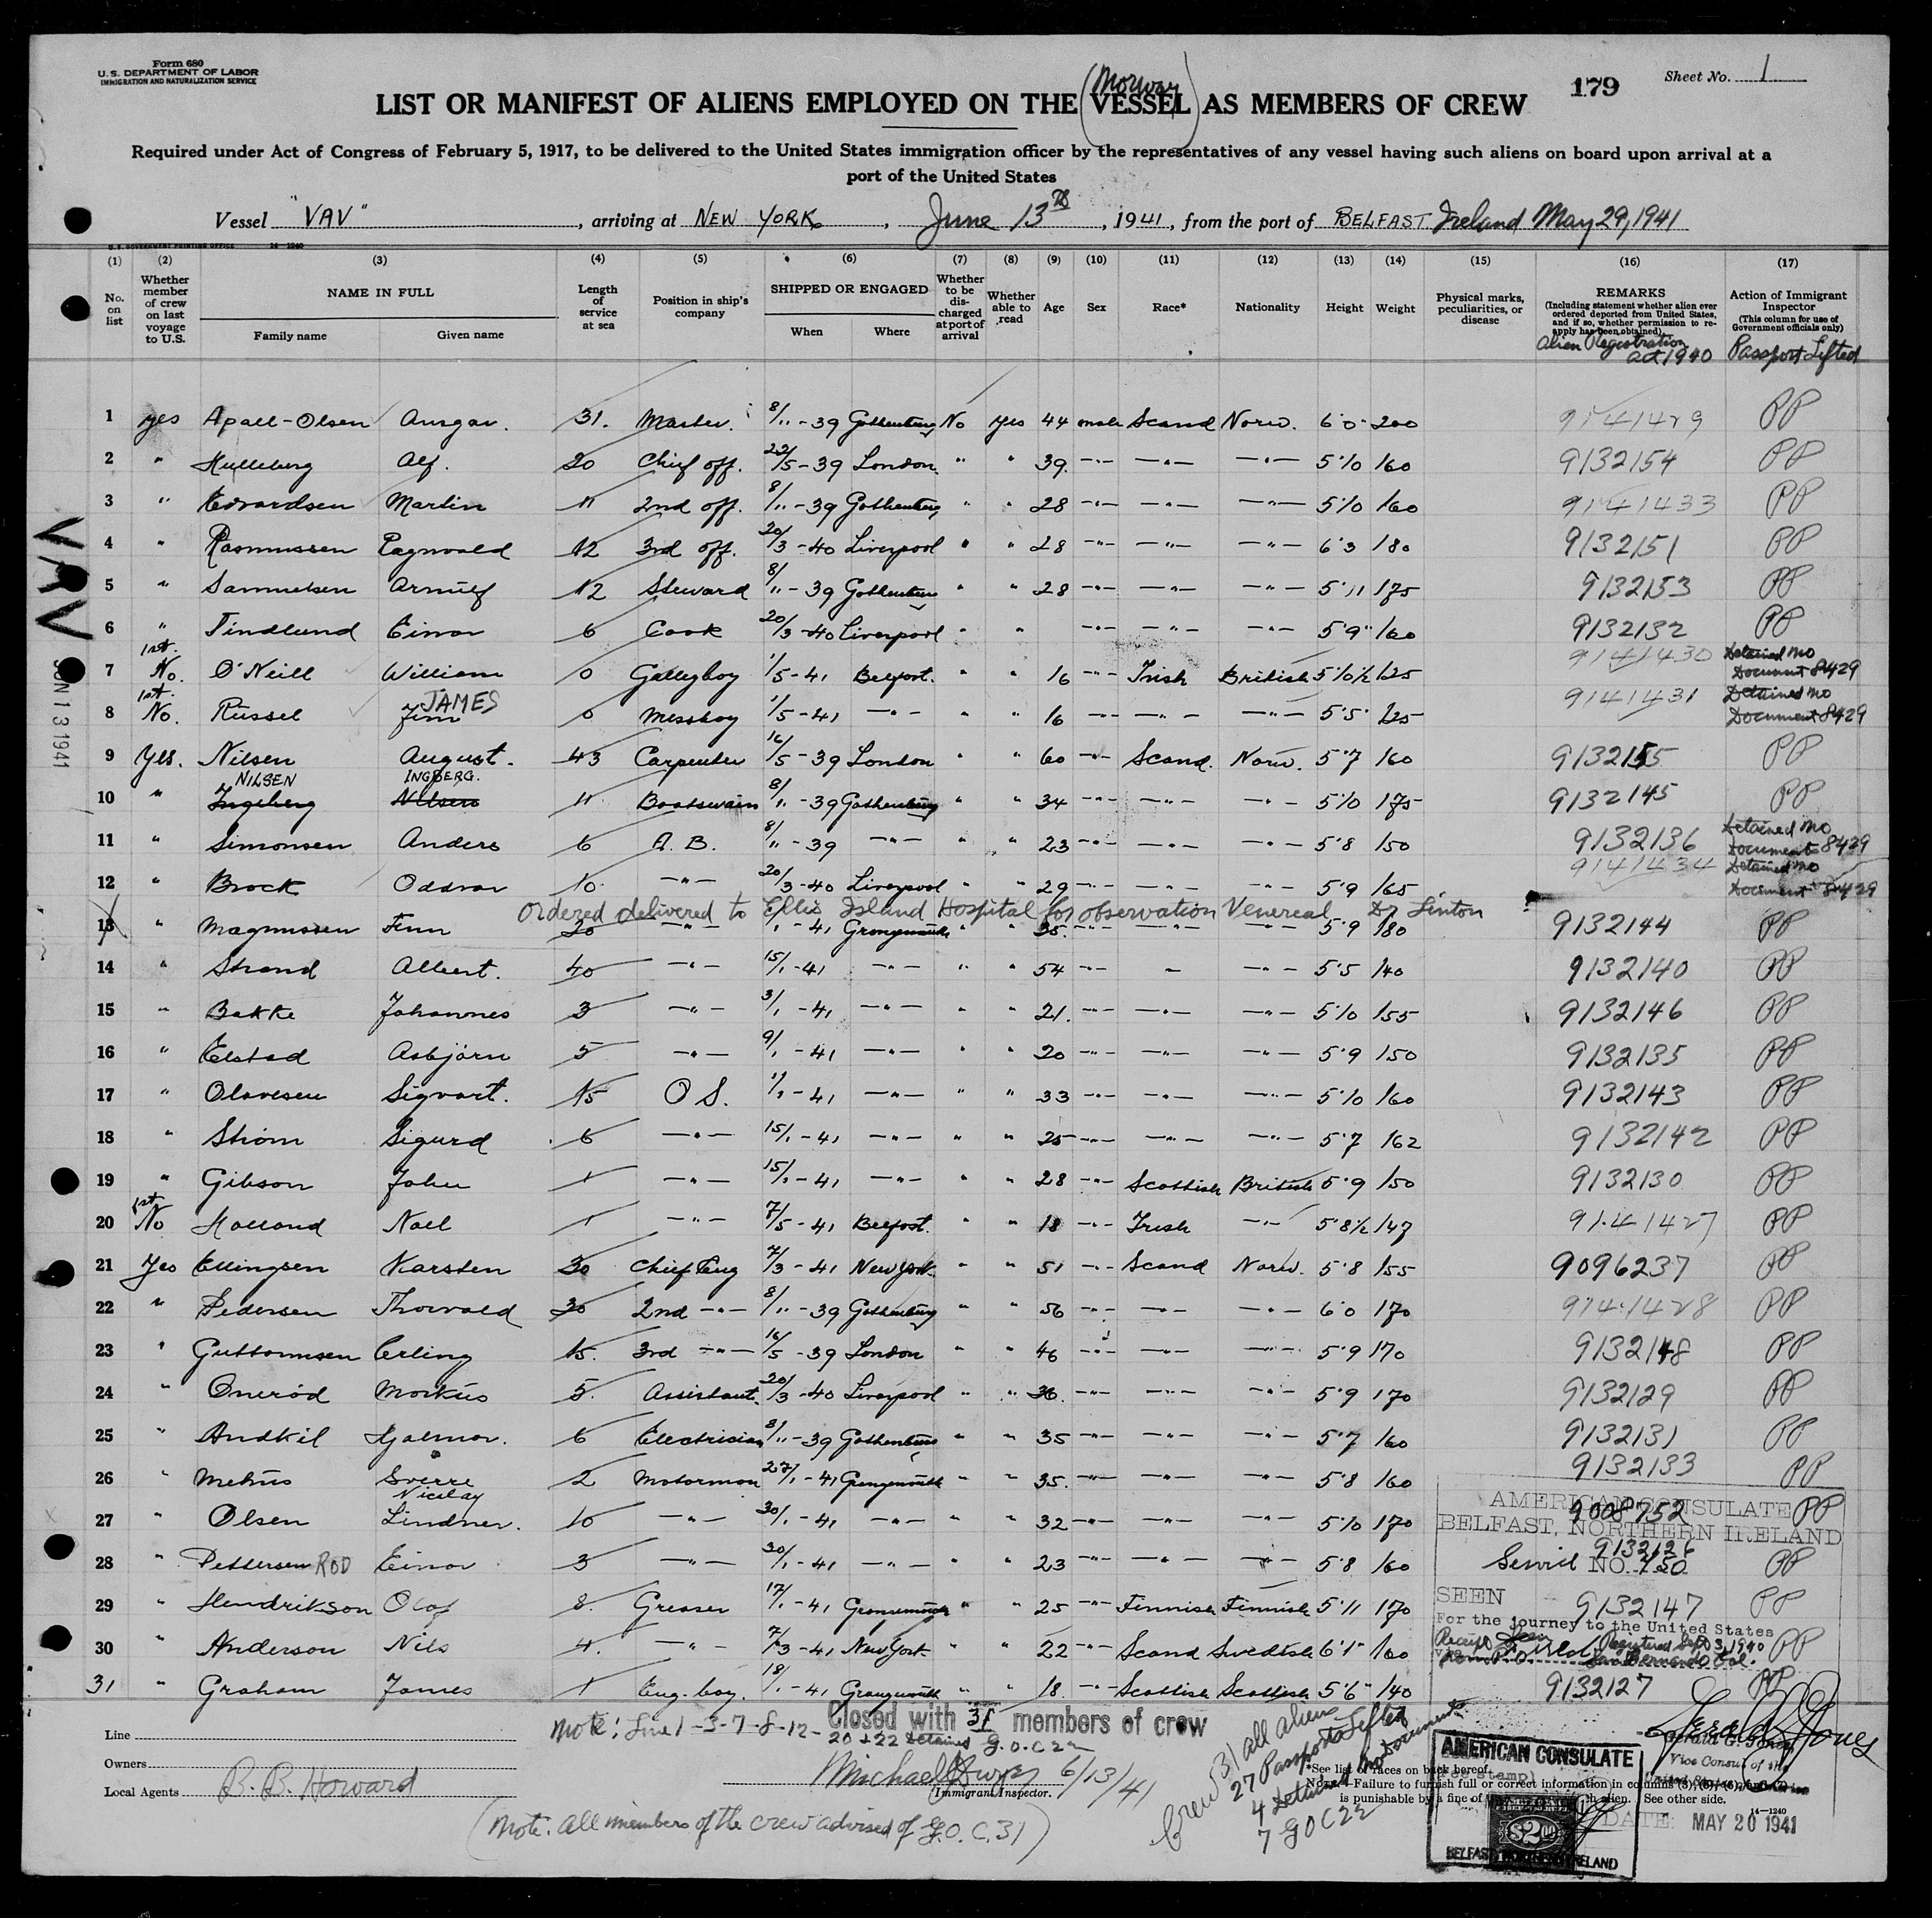 Form 680
U. S. DEPARTMENT OF LABOR
IMMIGRATION AND NATURALIZATION SERVICE
179
Sheet No. 1
(Norway)
LIST OR MANIFEST OF ALIENS EMPLOYED ON THE VESSEL AS MEMBERS OF CREW
Required under Act of Congress of February 5, 1917, to be delivered to the United States immigration officer by the representatives of any vessel having such aliens on board upon arrival at a
port of the United States
Vessel "VAV", arriving at NEW YORK, June 13th, 1941, from the port of BELFAST Ireland May 29, 1941
U. S. GOVERNMENT PRINTING OFFICE 14—1240
(1) (2) (3) (4) (5) (6) (7) (8) (9) (10) (11) (12) (13) (14) (15) (16) (17)
No. on list
Whether member of crew on last voyage to U.S.
NAME IN FULL
Family name Given name
Length of service at sea
Position in ship's company
SHIPPED OR ENGAGED
When Where
Whether to be discharged at port of arrival
Whether able to read
Age
Sex
Race*
Nationality
Height
Weight
Physical marks, peculiarities, or disease
REMARKS
(Including statement whether alien ever ordered deported from United States, and if so, whether permission to reapply has been obtained)
Alien Registration act 1940
Action of Immigrant Inspector
(This column for use of Government officials only)
Passport Lifted
1 yes Apall-Olsen Ansgar. 31. Master. 8/11-39 Gothenburg No yes 44 male Scand Norw. 6'0" 200 9141429 PP
2 " Hulleberg Alf. 20 Chief off. 22/5-39 London " " 39. -"- -"- -"- 5'10 160 9132154 PP
3 " Edvardsen Martin 11 2nd off. 8/11-39 Gothenburg " " 28 -"- -"- -"- 5'10 160 9141433 PP
4 " Rasmussen Ragnvald 12 3rd off. 20/3-40 Liverpool " " 28 -"- -"- -"- 6'3 180 9132151 PP
5 " Samuelsen Arnulf 12 Steward 8/11-39 Gothenburg " " 28 -"- -"- -"- 5'11 175 9132153 PP
6 " Tindlund Einar 6 Cook 20/3-40 Liverpool " " -"- -"- -"- 5'9" 160 9132132 PP
7 1st. No. O'Neill William 0 Galleyboy 1/5-41 Belfast. " " 16 -"- Irish British 5'10½ 125 9141430 Detained no Document 8429
8 1st. No. Russel Jim JAMES 0 Messboy 1/5-41 -"- " " 16 -"- -"- -"- 5'5" 125 9141431 Detained no Document 8429
9 Yes. Nilsen August. 43 Carpenter 16/5-39 London " " 60 -"- Scand. Norw. 5'7 160 9132155 PP
NILSEN INGBERG.
10 " Ingeberg Nilsen 11 Boatswain 8/11-39 Gothenburg " " 34 -"- -"- -"- 5'10 175 9132145 PP
11 " Simonsen Anders 6 A. B. 8/11-39 -"- " " 23 -"- -"- -"- 5'8 150 9132136 Detained no Document 8429
12 " Brock Oddvar 10 -"- 20/3-40 Liverpool " " 29 -"- -"- -"- 5'9 165 9141434 Detained no Document 8429
Ordered delivered to Ellis Island Hospital for observation Venereal Dr Linton
13 " Magnussen Finn 20 -"- 41 Grangemouth " " 35. -"- -"- -"- 5'9 180 9132144 PP
14 " Strand Albert. 40 -"- 15/1-41 -"- " " 54 -"- " -"- 5'5 140 9132140 PP
15 " Bakke Johannes 3 -"- 3/1-41 -"- " " 21. -"- -"- -"- 5'10 155 9132146 PP
16 " Elstad Asbjørn 5 -"- 9/1-41 -"- " " 20 -"- -"- -"- 5'9 150 9132135 PP
17 " Olavesen Sigvart. 15 O S. 11/1-41 -"- " " 33 -"- -"- -"- 5'10 160 9132143 PP
18 " Strøm Sigurd 6 -"- 15/1-41 -"- " " 25 -"- -"- -"- 5'7 162 9132142 PP
19 " Gibson John 1 -"- 15/1-41 -"- " " 28 -"- Scottish British 5'9 150 9132130 PP
20 1st No Holland Noel 1 -"- 7/5-41 Belfast. " " 18 -"- Irish -"- 5'8½ 147 9141427 PP
21 Yes Ellingsen Karsten 30 Chief Eng 7/3-41 New York. " " 51 -"- Scand Norw. 5'8 155 9096237 PP
22 " Pedersen Thorvald 30 2nd -"- 8/11-39 Gothenburg " " 56 -"- -"- -"- 6'0 170 9141428 PP
23 " Guttormsen Erling 15. 3rd -"- 16/5-39 London " " 46 -"- -"- -"- 5'9 170 9132148 PP
24 " Onerød Markus 5. Assistant. 20/3-40 Liverpool " " 36. -"- -"- -"- 5'9 170 9132129 PP
25 " Andkil Hjalmar. 6 Electrician 8/11-39 Gothenburg " " 35 -"- -"- -"- 5'7 160 9132131 PP
26 " Mehus Sverre 2 Motorman 27/1-41 Grangemouth " " 35. -"- -"- -"- 5'8 160 9132133 PP
27 " Olsen Nicolay Lindner. 10 -"- 30/1-41 -"- " " 32 -"- -"- -"- 5'10 170 9008752 PP
28 " Pettersen ROD Einar 3 -"- 30/1-41 -"- " " 23 -"- -"- -"- 5'8 160 9132126 PP
29 " Hendrikson Olof 8. Greaser 17/1-41 Grangemouth " " 25 -"- Finnish Finnish 5'11 170 9132147 PP
30 " Anderson Nils 4. -"- 7/3-41 New York. " " 22 -"- Scand Swedish 6'1" 160 Receipt Seen Registered Sept 3, 1940 from P.O. San Bernardo Cal. PP
31 " Graham James 1 Eng. boy. 18/1-41 Grangemouth " " 18. -"- Scottish Scottish 5'6" 140 9132127 PP
VAV
JUN 13 1941
AMERICAN CONSULATE
BELFAST, NORTHERN IRELAND
Service NO. 750
SEEN
For the journey to the United States
Line
Owners
Local Agents B. B. Howard
Note: Line 1-3-7-8-12-20+22 Detained G.O.C 22
Closed with 31 members of crew
6/13/41
Immigrant Inspector.
(Note: All members of the crew advised of G.O.C. 31)
Crew 31 all aliens
27 Passports Lifted
4 Detained No Document
7 GOC 22
*See list of races on back hereof.
NOTE.—Failure to furnish full or correct information in columns (3), (5), (6),
is punishable by a fine of alien. See other side.
14—1240
Gerald G. Jones
Vice Consul of the
AMERICAN CONSULATE
(Fee stamp)
$2.00
BELFAST, NORTHERN IRELAND
DATE: MAY 20 1941